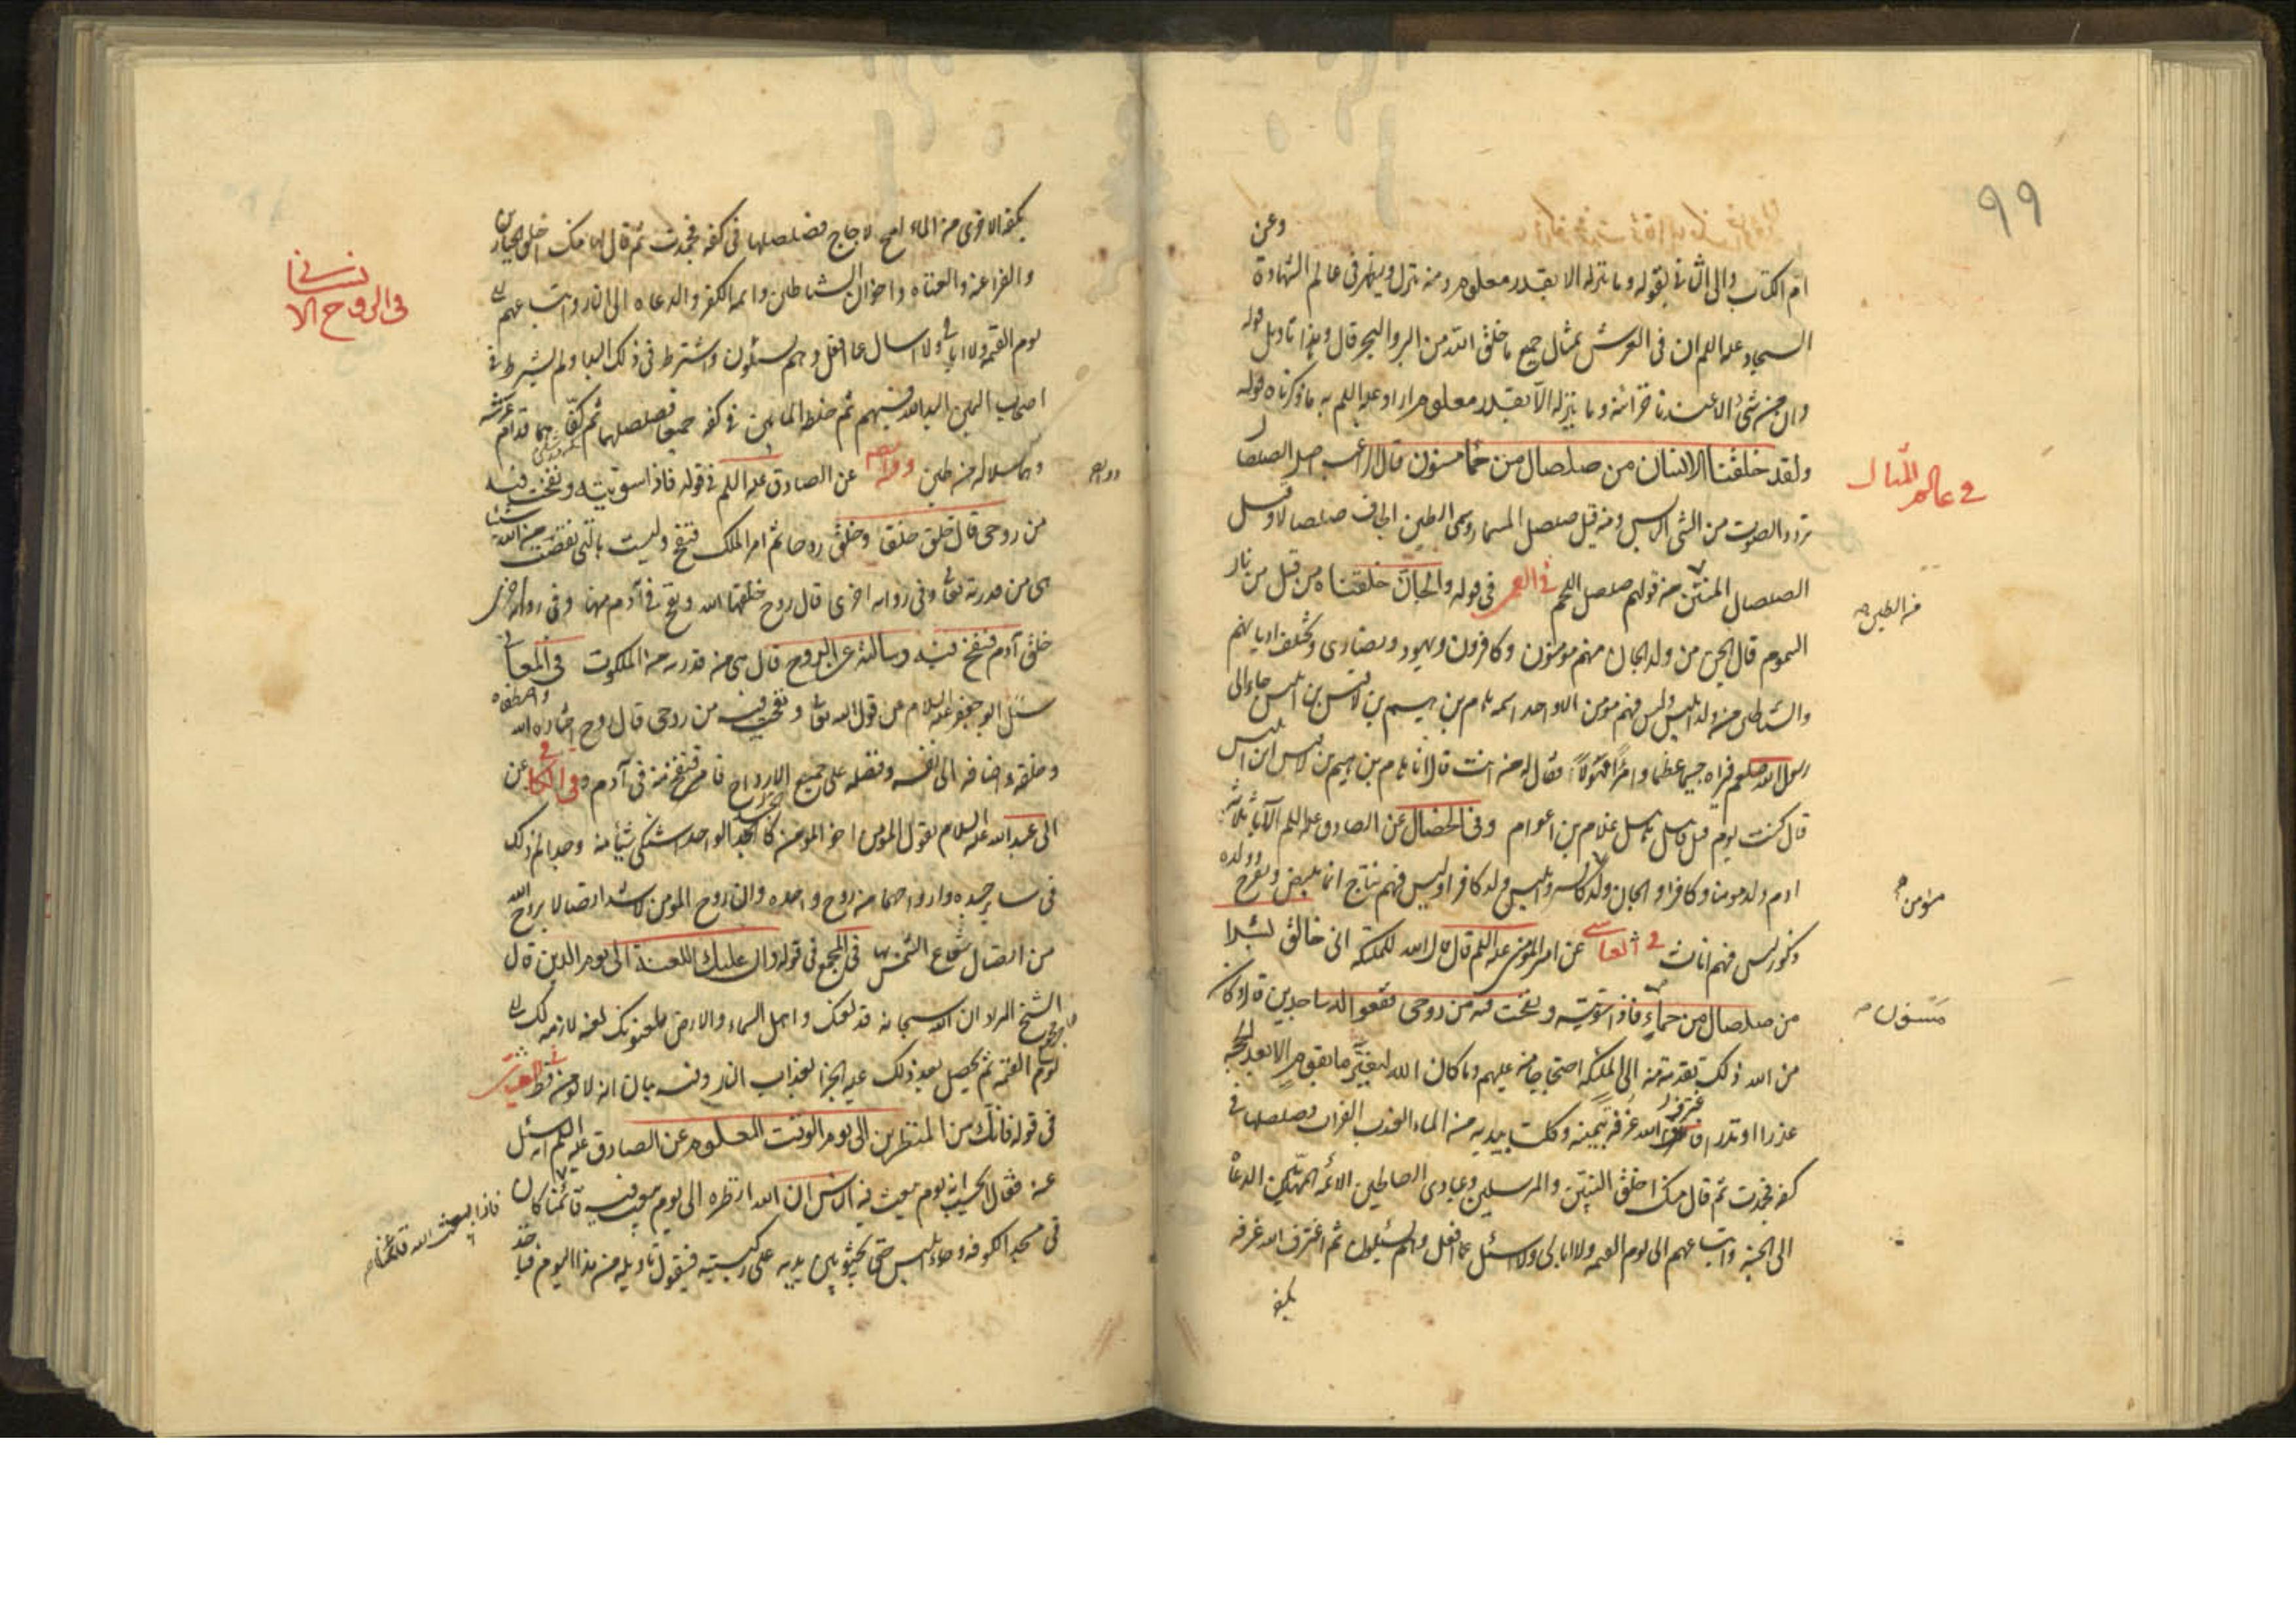 99
وعن
ام الكتاب والى الثانى بقوله وما ننزله الا بقدر معلوم ومنه ينزل ويظهر فى عالم الشهادة
السجاد عليه السلم ان فى العرش تمثال جميع ما خلق الله من البر والبحر قال وهذا تاويل قوله
وان من شئ الا عندنا خزائنه وما ننزله الا بقدر معلوم اراد عليه السلم به ما ذكرناه قوله
ولقد خلقنا الانسان من صلصال من حمأ مسنون قال الراغب اصل الصلصال
تردد الصوت من الشئ اليابس ومنه قيل صلصل المسمار وسمى الطين الجاف صلصالا وقيل
الصلصال المنتن من قولهم صلصل اللحم فى القمى فى قوله والجان خلقناه من قبل من نار
السموم قال الجن من ولد الجان منهم مؤمنون وكافرون ويهود ونصارى وتختلف اديانهم
والشياطين من ولد ابليس وليس فيهم مؤمن الا واحد اسمه هام بن هيم بن لاقيس بن ابليس جاء الى
رسول الله صلعم فراه جسيما عظيما وامرءا مهولا فقال له من انت قال انا هام بن هيم بن لاقيس ابن ابليس
قال كنت يوم قتل قابيل هابيل غلام بن اعوام وفى الخصال عن الصادق عليه السلم الآباء ثلاثة
ادم ولد مومنا وكافرا والجان ولد كافرا وابليس ولد كافرا وليس فيهم نتاج انما يبيض ويفرخ وولده
ذكور ليس فيهم اناث فى العياشى عن امير المؤمنين عليه السلم قال قال الله للملئكة انى خالق بشرا
من صلصال من حمأ فاذا سويته ونفخت فيه من روحى فقعوا له ساجدين قال وكان
من الله ذلك تقدمة منه الى الملئكة احتجاجا منه عليهم وما كان الله ليغير ما بقوم الا بعد الحجة
عذرا او نذرا فاغترف الله غرفة بيمينه وكلتا يديه من الماء العذب الفرات فصلصلها فى
كفه فجمدت ثم قال منك اخلق النبيين والمرسلين وعبادى الصالحين الائمة المهتدين الدعاة
الى الجنة واتباعهم الى يوم القيمة ولا ابالى ولا اسئل عما افعل وهم يسئلون ثم اغترف الله غرفة
بكفه
فى عالم المثال
من الطين
مؤمن
مسنون
بكفه الاخرى من الماء الملح الاجاج فصلصلها فى كفه فجمدت ثم قال لها منك اخلق الجبارين
والفراعنة والعتاة واخوان الشياطين وائمة الكفر والدعاة الى النار واتباعهم الى
يوم القيمة ولا ابالى ولا اسال عما افعل وهم يسئلون واشترط فى ذلك البداء ولم يشترط فى
اصحاب اليمين البداء لله فيهم ثم خلط المائين فى كفه جميعا فصلصلهما ثم كفاهما قدام عرشه
وهما سلالة من طين وفيه عن الصادق عليه السلم فى قوله فاذا سويته ونفخت فيه
من روحى قال خلق خلقا وخلق روحا ثم امر الملك فنفخ وليست بالتى نقصت من الله شيئا
هى من قدرته تعالى وفى رواية اخرى قال روح خلقها الله ونفخ فى آدم منها وفى رواية اخرى
خلق آدم فنفخ فيه وسالته عن الروح قال هى من قدرته من الملكوت فى المعانى
سئل ابو جعفر عليه السلام عن قول الله تعالى ونفخت فيه من روحى قال روح اختاره الله واصطفاه
وخلقه واضافه الى نفسه وفضله على جميع الارواح فامر فنفخ منه فى آدم وفى الكافى عن
ابى عبد الله عليه السلام يقول المؤمن اخو المؤمن كالجسد الواحد اذا اشتكى شيئا منه وجد الم ذلك
فى ساير جسده وارواحهما من روح واحدة وان روح المومن لاشد اتصالا بروح الله
من اتصال شعاع الشمس بها فى المجمع فى قوله وان عليك اللعنة الى يوم الدين قال
الشيخ المراد ان الله سبحانه قد لعنك واهل السماء والارض يلعنونك لعنة لازمة لك الى
يوم القيمة ثم يحصل بعد ذلك على الجزاء بعذاب النار وفيه بيان انه لا يؤمن قط فى العياشى
فى قوله فانك من المنظرين الى يوم الوقت المعلوم عن الصادق عليه السلم انه سئل
عنه فقال اتحسب انه يوم يبعث فيه الناس ان الله انظره الى يوم يبعث فيه قائمنا كان
فى مسجد الكوفة وجاء ابليس حتى يجثو بين يديه على ركبتيه فيقول يا ويله من هذا اليوم فياخذ
فى الروح الا
نسانى
فاذا بعث الله قائمنا